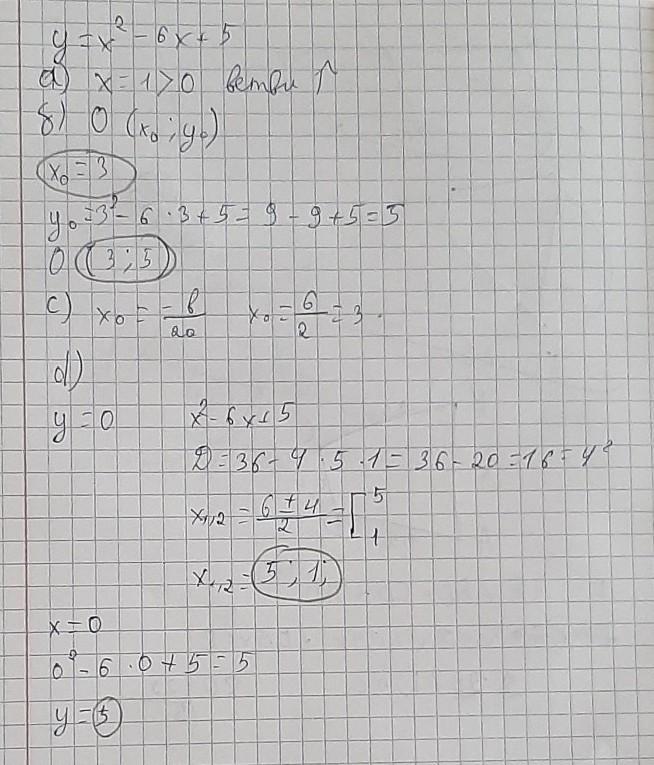 y = x² - 6x + 5
a) x = 1 > 0 ветви ↑
б) O (x₀ ; y₀)
x₀ = 3
y₀ = 3² - 6 · 3 + 5 = 9 - 9 + 5 = 5
O (3 ; 5)
c) x₀ = -b/2a x₀ = 6/2 = 3
d)
y = 0 x² - 6x + 5
D = 36 - 4 · 5 · 1 = 36 - 20 = 16 = 4²
x₁,₂ = (6 ± 4)/2 = [ 5 1
x₁,₂ = 5 ; 1;
x = 0
0² - 6 · 0 + 5 = 5
y = 5